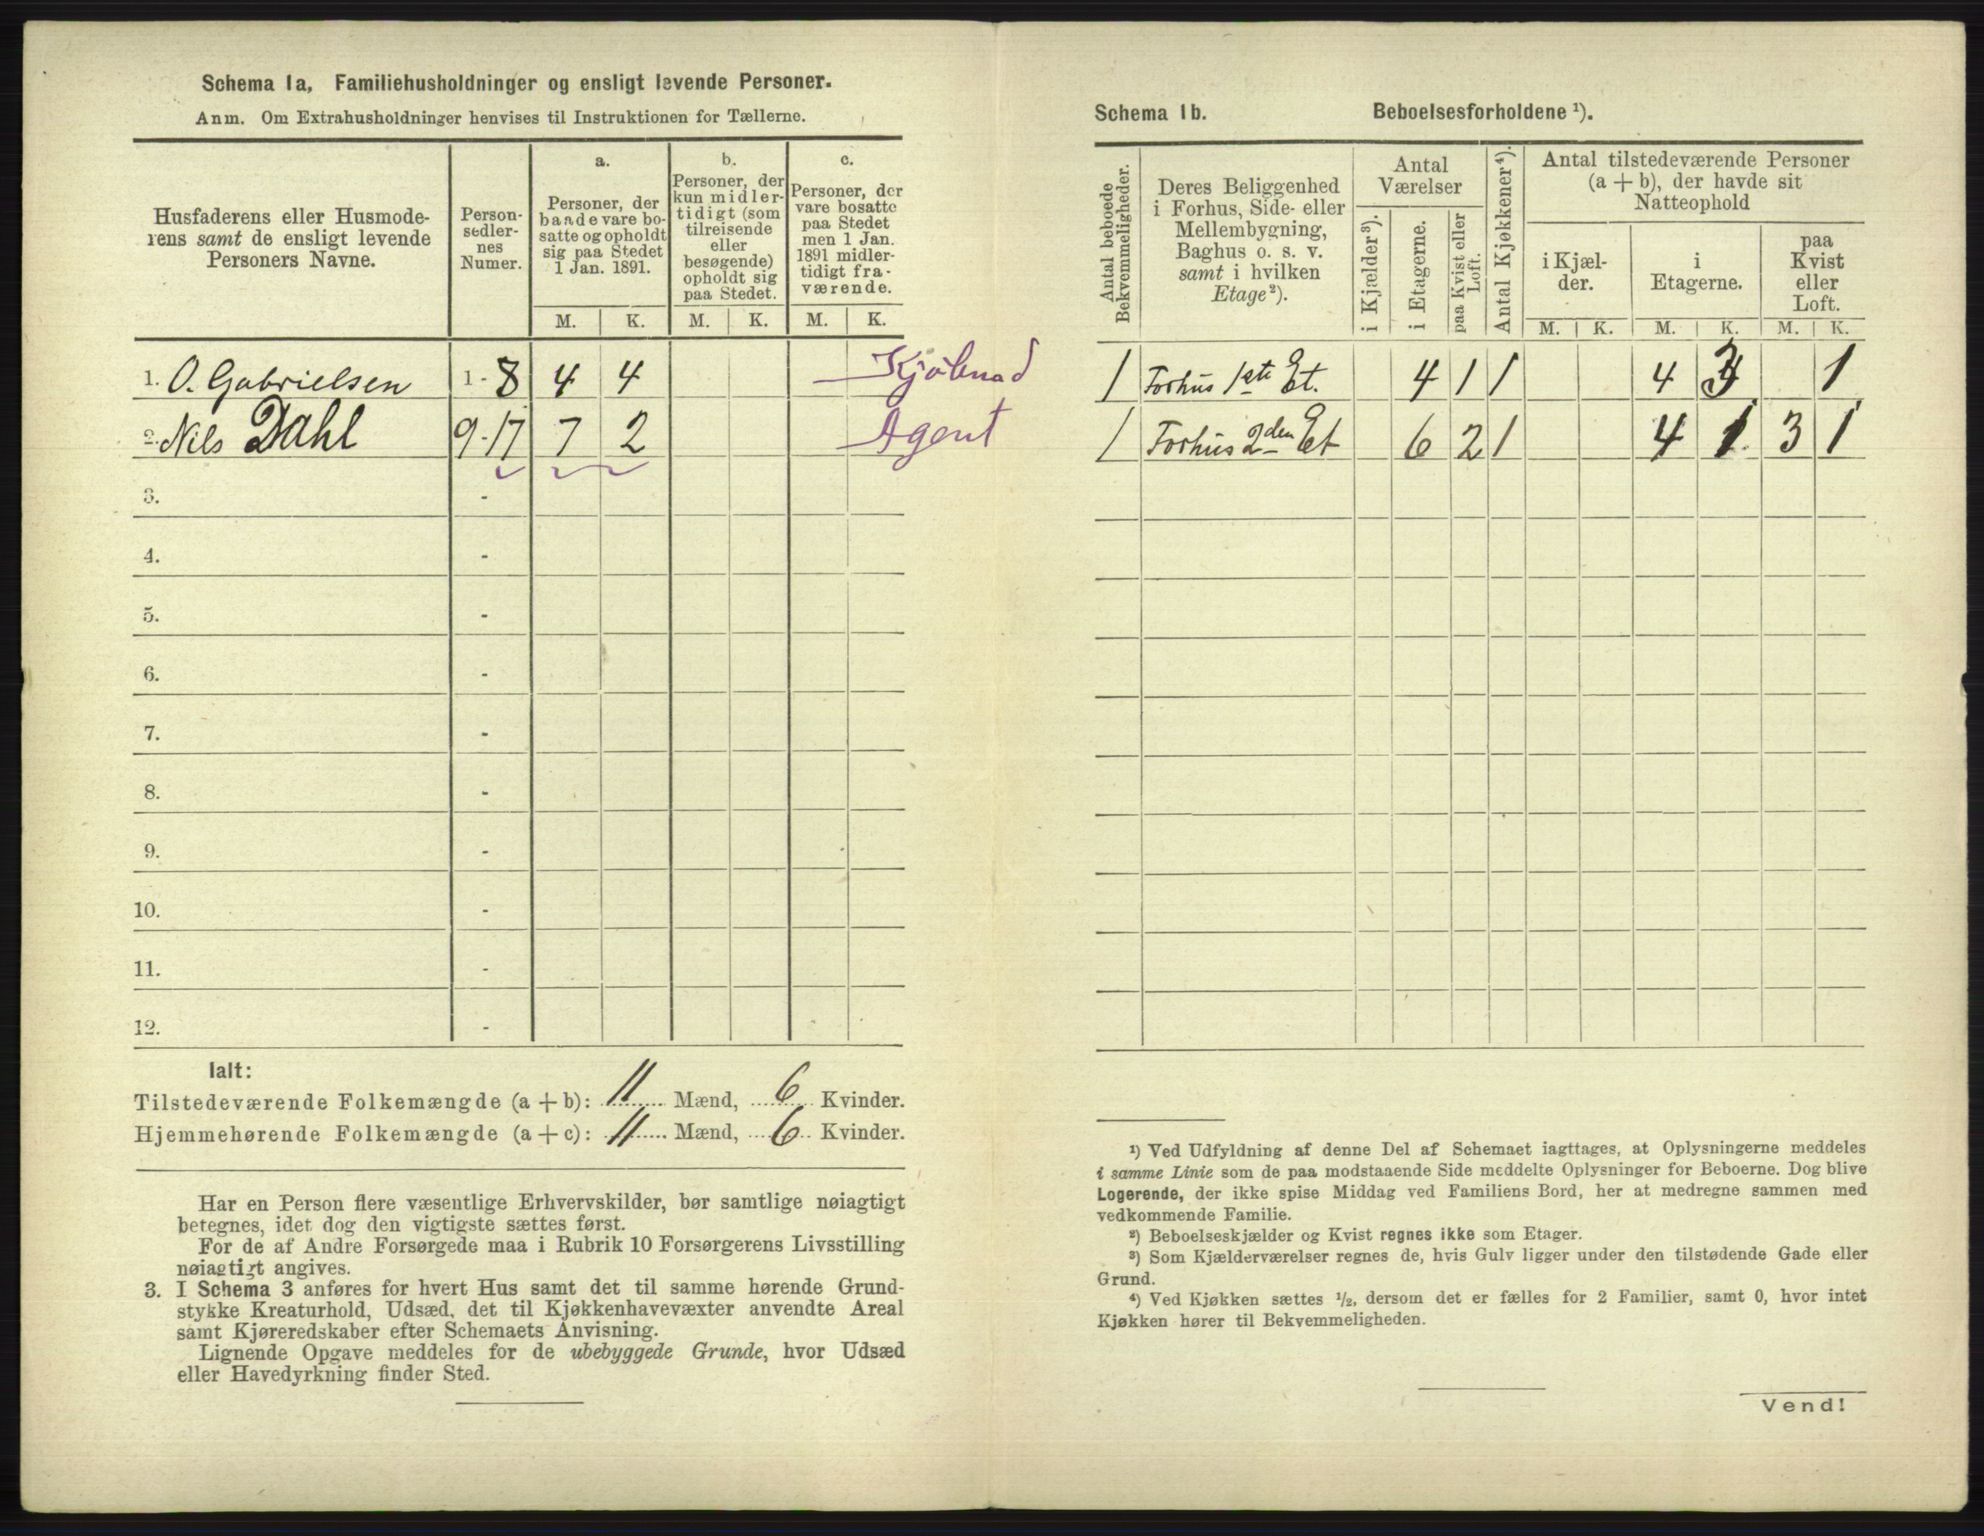 Schema 1a, Familiehusholdninger og ensligt levende Personer.
Anm. Om Extrahusholdninger henvises til Instruktionen for Tællerne.
Husfaderens eller Husmode-
rens samt de ensligt levende
Personers Navne.
Person-
sedler-
nes
Numer.
a.
Personer, der
baade vare bo-
satte og opholdt
sig paa Stedet
1 Jan. 1891.
b.
Personer, der
kun midler-
tidigt (som
tilreisende
eller
besøgende)
opholdt sig
paa Stedet.
c.
Personer, der
vare bosatte
paa Stedet
men 1 Jan.
1891 midler-
tidigt fra-
værende.
M. K. M. K. M. K.
1. O. Gabrielsen 1 - 8 4 4 Kjøbmad
2. Nils Dahl 9-17 7 2 Agent
3. -
4. -
5. -
6. -
7. -
8. -
9. -
10. -
11. -
12. -
Ialt:
Tilstedeværende Folkemængde (a + b): 11 Mænd, 6 Kvinder.
Hjemmehørende Folkemængde (a + c): 11 Mænd, 6 Kvinder.
Har en Person flere væsentlige Erhvervskilder, bør samtlige nøiagtigt
betegnes, idet dog den vigtigste sættes først.
For de af Andre Forsørgede maa i Rubrik 10 Forsørgerens Livsstilling
nøiagtigt angives.
3. I Schema 3 anføres for hvert Hus samt det til samme hørende Grund-
stykke Kreaturhold, Udsæd, det til Kjøkkenhavevæxter anvendte Areal
samt Kjøreredskaber efter Schemaets Anvisning.
Lignende Opgave meddeles for de ubebyggede Grunde, hvor Udsæd
eller Havedyrkning finder Sted.
Schema 1b. Beboelsesforholdene ¹).
Antal beboede
Bekvemmeligheder.
Deres Beliggenhed
i Forhus, Side- eller
Mellembygning,
Baghus o. s. v.
samt i hvilken
Etage²).
Antal
Værelser
i Kjælder³).
i Etagerne.
paa Kvist eller
Loft.
Antal Kjøkkener⁴).
Antal tilstedeværende Personer
(a + b), der havde sit
Natteophold
i Kjæl-
der.
i
Etagerne.
paa
Kvist
eller
Loft.
M. K. M. K. M. K.
1 Forhus 1ste Et. 4 1 1 4 3 1
1 Forhus 2den Et 6 2 1 4 1 3 1
¹) Ved Udfyldning af denne Del af Schemaet iagttages, at Oplysningerne meddeles
i samme Linie som de paa modstaaende Side meddelte Oplysninger for Beboerne. Dog blive
Logerende, der ikke spise Middag ved Familiens Bord, her at medregne sammen med
vedkommende Familie.
²) Beboelseskjælder og Kvist regnes ikke som Etager.
³) Som Kjælderværelser regnes de, hvis Gulv ligger under den tilstødende Gade eller
Grund.
⁴) Ved Kjøkken sættes ½, dersom det er fælles for 2 Familier, samt 0, hvor intet
Kjøkken hører til Bekvemmeligheden.
Vend!